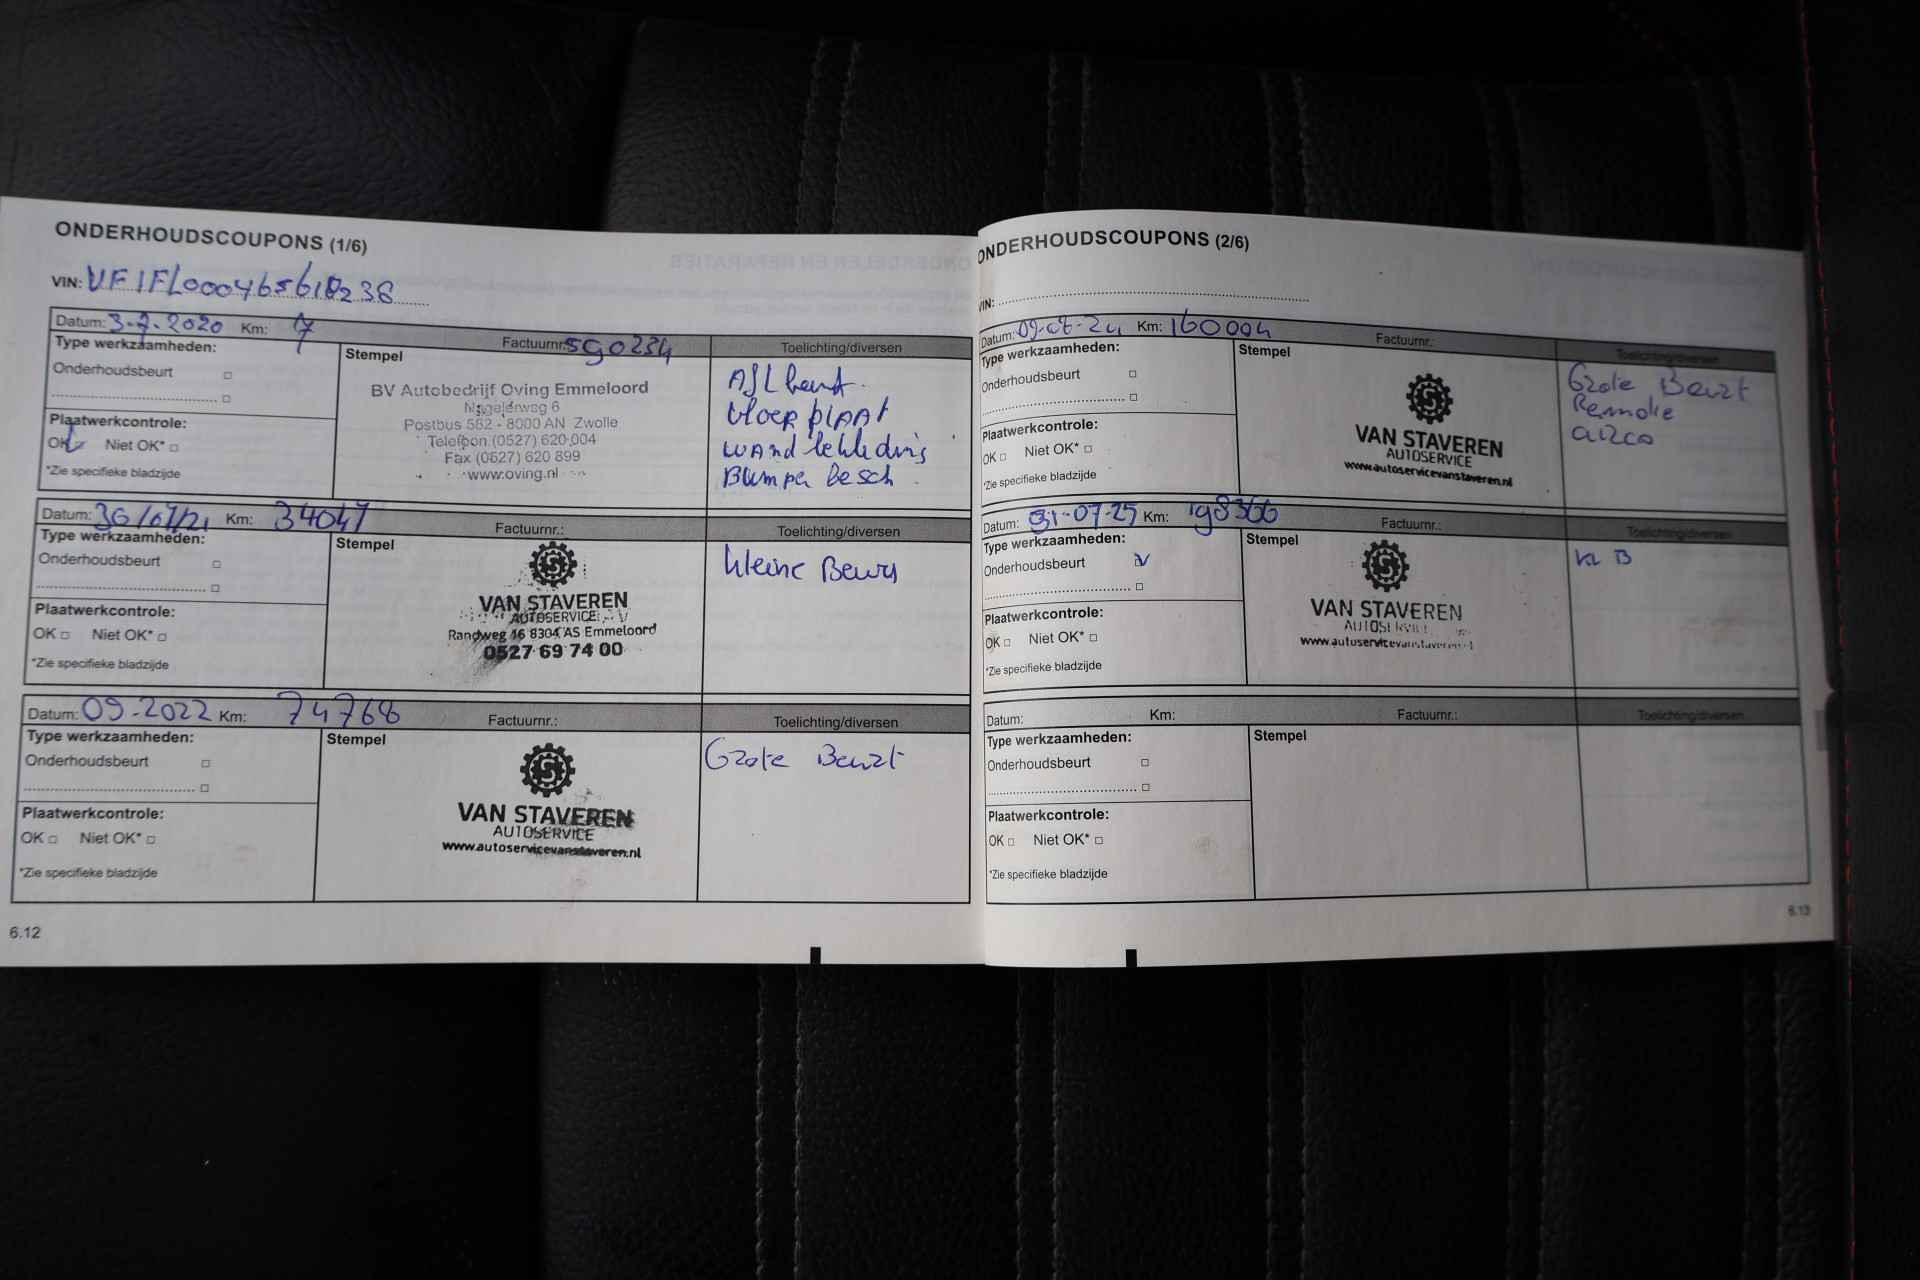 ONDERHOUDSCOUPONS (1/6)
VIN: VF1FL000465618238
Datum: 3-7-2020 Km: 7 Factuurnr.: 590234 Toelichting/diversen
Type werkzaamheden:
Onderhoudsbeurt
Plaatwerkcontrole:
OK Niet OK*
*Zie specifieke bladzijde
Stempel
BV Autobedrijf Oving Emmeloord
Nagelerweg 6
Postbus 582 - 8000 AN Zwolle
Telefoon (0527) 620 004
Fax (0527) 620 899
www.oving.nl
Afl beurt
Vloerplaat
wand
Bumper besch
Datum: 30/07/21 Km: 34047 Factuurnr.: Toelichting/diversen
Type werkzaamheden:
Onderhoudsbeurt
Plaatwerkcontrole:
OK Niet OK*
*Zie specifieke bladzijde
Stempel
VAN STAVEREN
AUTOSERVICE
Randweg 16 8304 AS Emmeloord
0527 69 74 00
kleine Beurt
Datum: 09-2022 Km: 74768 Factuurnr.: Toelichting/diversen
Type werkzaamheden:
Onderhoudsbeurt
Plaatwerkcontrole:
OK Niet OK*
*Zie specifieke bladzijde
Stempel
VAN STAVEREN
AUTOSERVICE
www.autoservicevanstaveren.nl
Grote Beurt
6.12
ONDERHOUDSCOUPONS (2/6)
VIN:
Datum: 09-08-24 Km: 160004 Factuurnr.: Toelichting/diversen
Type werkzaamheden:
Onderhoudsbeurt
Plaatwerkcontrole:
OK Niet OK*
*Zie specifieke bladzijde
Stempel
VAN STAVEREN
AUTOSERVICE
www.autoservicevanstaveren.nl
Grote Beurt
Remolie
airco
Datum: 31-07-25 Km: 198366 Factuurnr.: Toelichting/diversen
Type werkzaamheden:
Onderhoudsbeurt
Plaatwerkcontrole:
OK Niet OK*
*Zie specifieke bladzijde
Stempel
VAN STAVEREN
AUTOSERVICE
www.autoservicevanstaveren.nl
KL B
Datum: Km: Factuurnr.: Toelichting/diversen
Type werkzaamheden:
Onderhoudsbeurt
Plaatwerkcontrole:
OK Niet OK*
*Zie specifieke bladzijde
Stempel
6.13